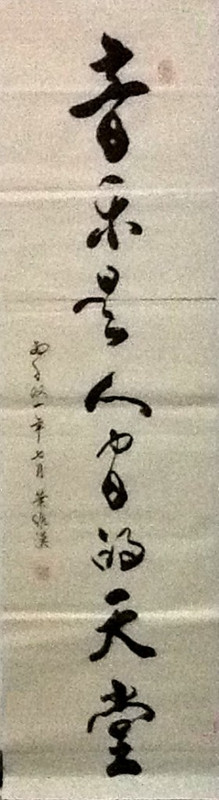 音乐是人间的天堂
一年七月